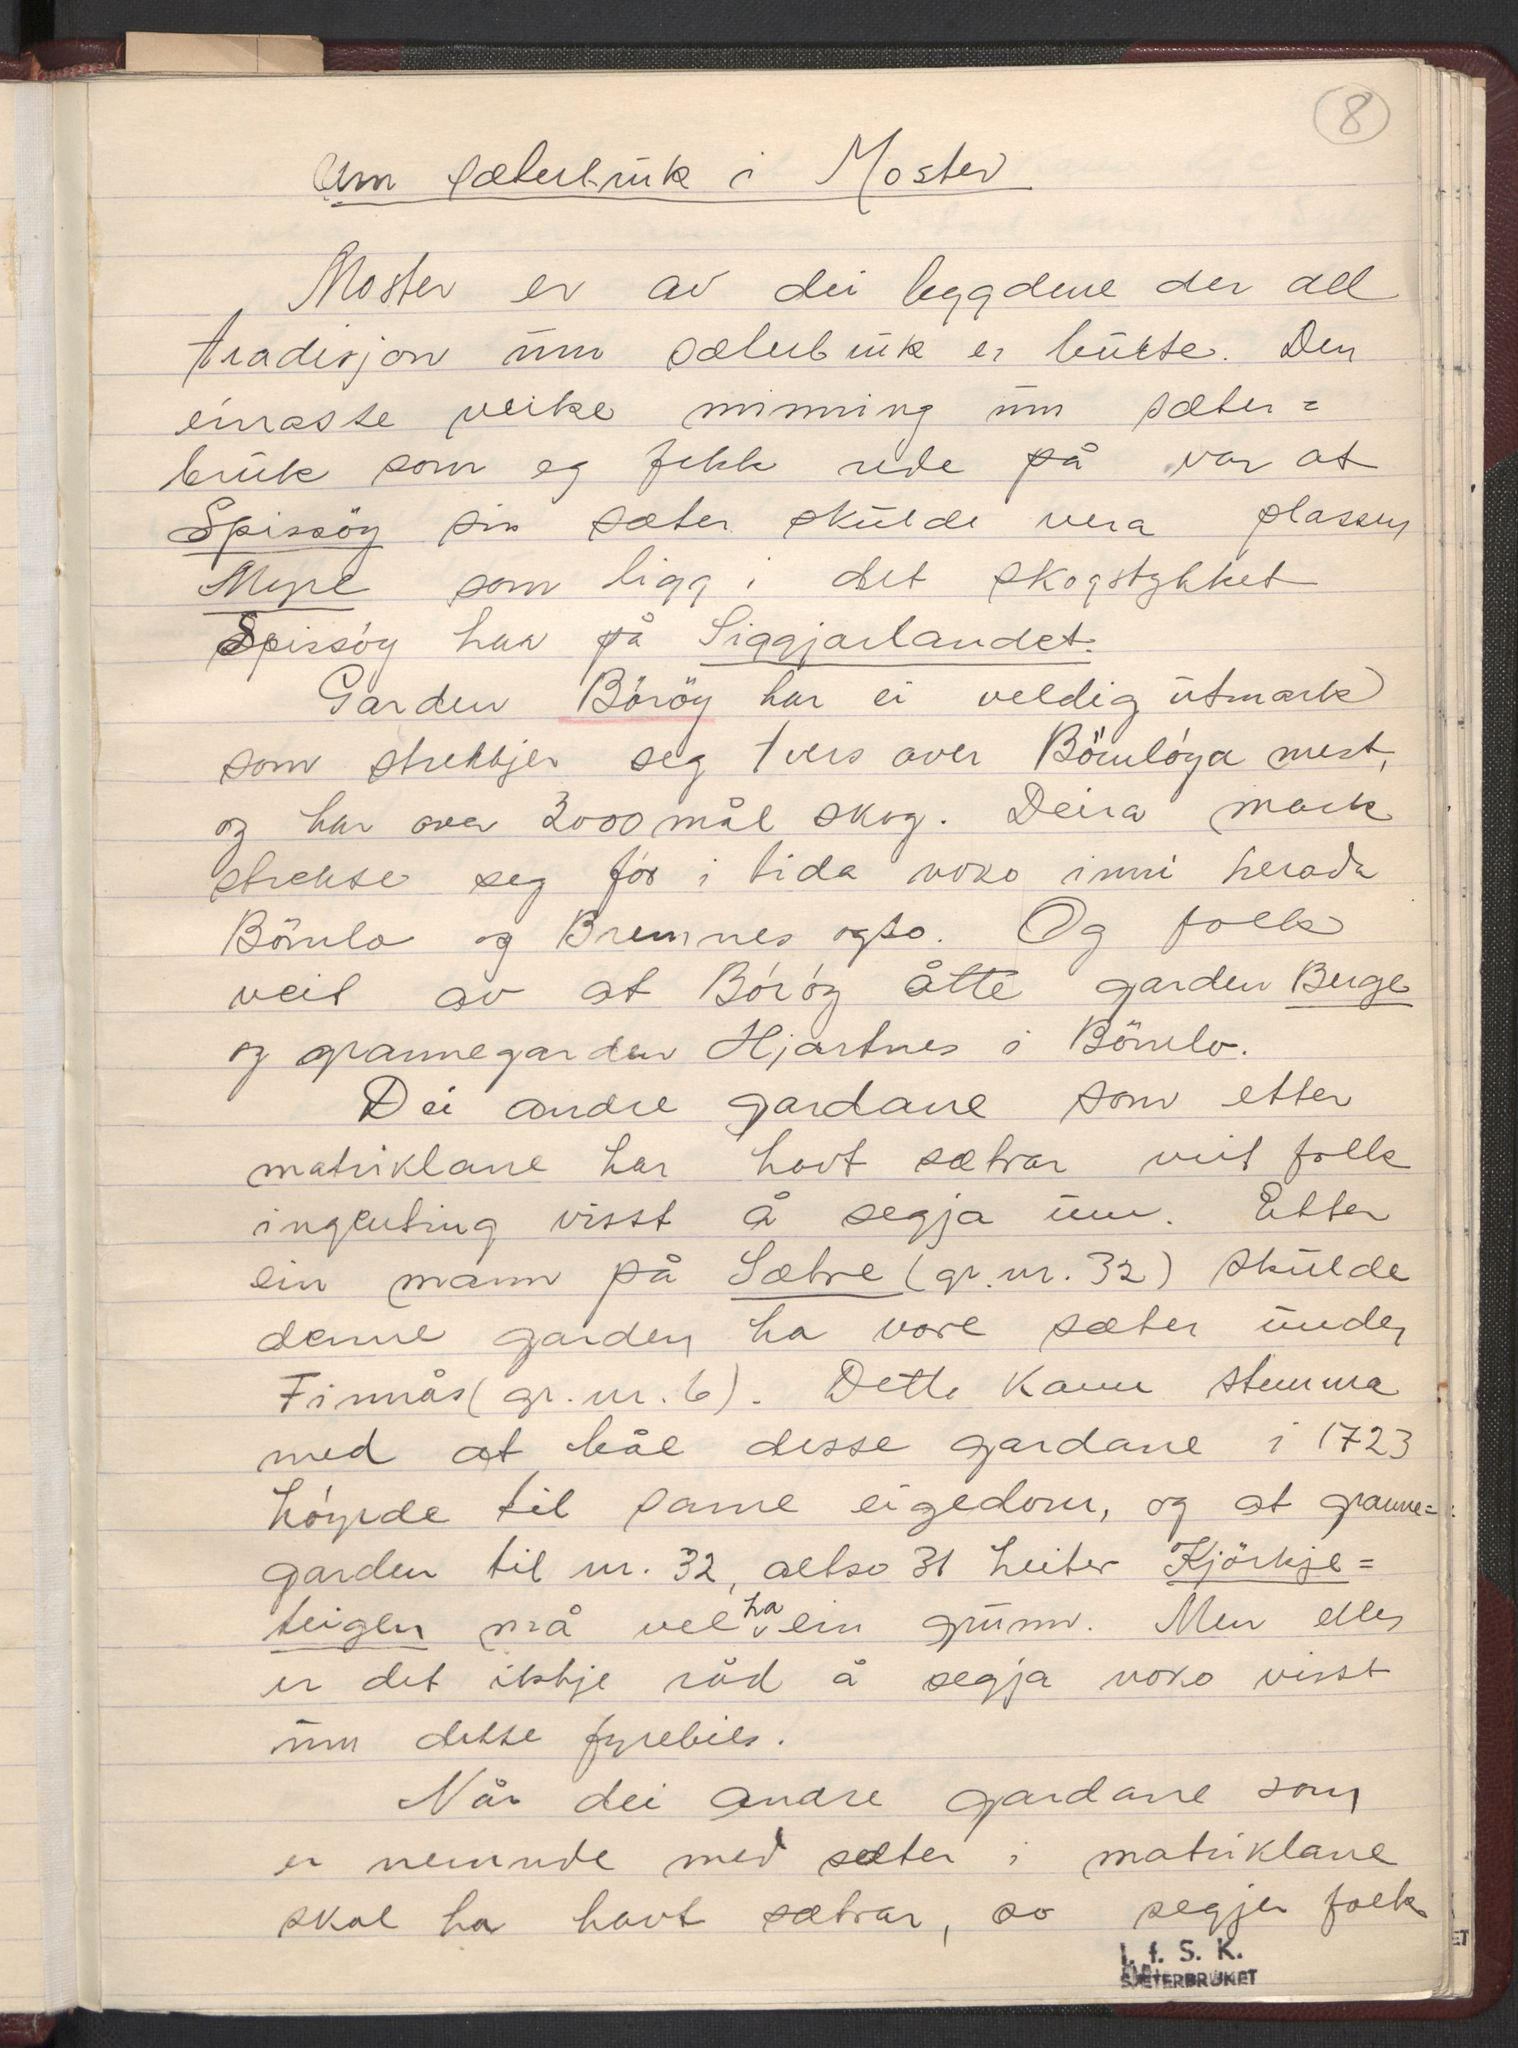 8
Um sæterbruk i Moster
Moster er av dei bygdene der all
tradisjon um sæterbruk er burte. Den
einaste veike minning um sæter=
bruk som eg fekk rede på var at
Spissöy sin sæter skulde vera plassen
Myre som ligg i det skogstykket
Spissöy har på Siggjarlandet.
Garden Böröy har ei veldig utmark
som strekkjer seg tvers over Bömlöya mest,
og har over 3000 mål skog. Deira mark
strekte seg för i tida noko inni herada
Bömlo og Bremnes ogso. Og folk
veit av at Böröy åtte garden Berge
og grannegarden Hjartnes i Bömlo.
Dei andre gardane som etter
matriklane har havt sætrar veit folk
ingenting visst å segja um. Etter
ein mann på Sætre (gr. nr. 32) skulde
denne garden ha vore sæter under
Finnås (gr. nr. 6). Dette kann stemma
med at båe desse gardane i 1723
höyrde til same eigedom, og at granne=
garden til nr. 32, altso 31 heiter Kjörkje=
teigen må vel ha ein grunn. Men elles
er det ikkje råd å segja noko visst
um dette fyrebils.
Når dei andre gardane som
er nemnde med sæter i matriklane
skal ha havt sætrar, so segjer folk
I. f. S. K.
SÆTERBRUKET